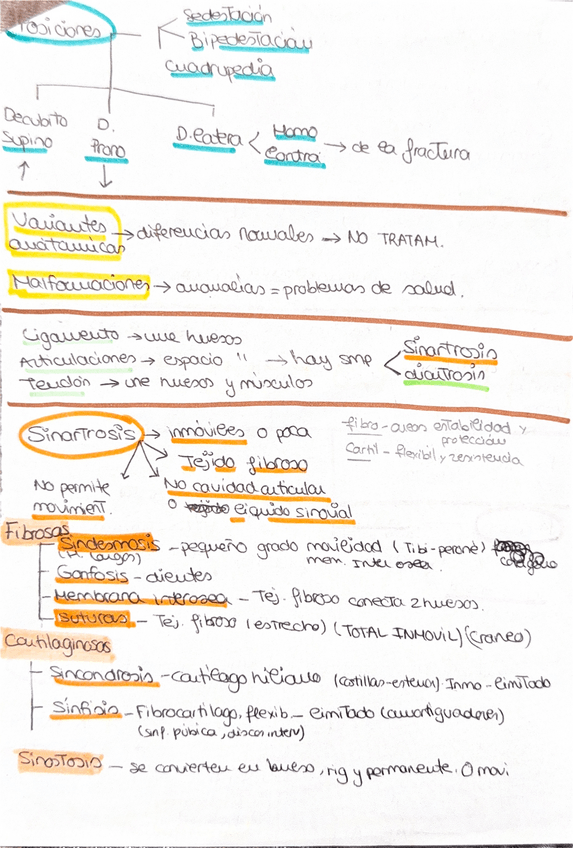 Posiciones
Sedestación
Bipedestación
Cuadrupedia
Decubito
Supino
D.
Prono
D. Latera < Homo
Contra → de la fractura
Variantes
anatómicas → diferencias normales → NO TRATAM.
Malformaciones → anomalías = problemas de salud.
Ligamento → une huesos
Articulaciones → espacio " → hay smp < Sinartrosis
diartrosis
Tendón → une huesos y músculos
Sinartrosis → inmóviles o poca
Tejido fibroso
No cavidad articular
o líquido sinovial
No permite
movimient.
fibro - áreas estabilidad y
protección
Cartil - flexibil y resistencia
Fibrosas
Sindesmosis - pequeño grado movilidad (Tibi-peroné)
(H. largos)
mem. Interosea
colágeno
Gonfosis - dientes
Membrana interosea - Tej. fibroso conecta 2 huesos.
Suturas - Tej. fibroso (estrecho) (TOTAL INMOVIL) (Craneo)
Cartilaginosas
Sincondrosis - cartílago hialiano (costillas-esternón). Inmo - limitado
Sínfisis - Fibrocartílago, flexib - limitado (amortiguadores)
(sinf. púbica, discos interv)
Sinostosis - se convierten en hueso, rig y permanente. 0 movi